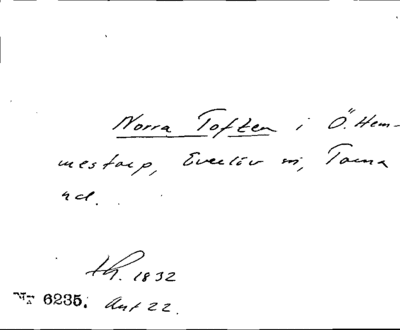 Norra Toften i Ö. Hem-
mestorp, Everlöv sn, Torna
hd.
Lh. 1832
Nr 6235. Akt 22.